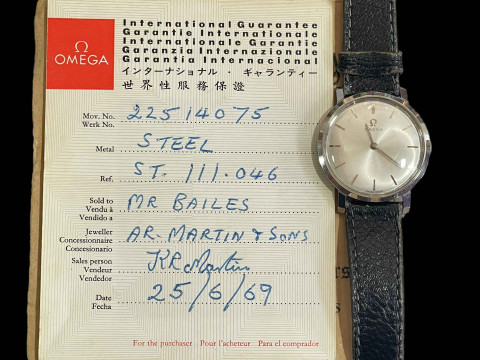 Ω
OMEGA
International Guarantee
Garantie Internationale
Internationale Garantie
Garanzia Internazionale
Garantía Internacional
インターナショナル・ギャランティー
世界性服務保證
Mov. No. 22514075
Werk No.
Metal STEEL
Ref. ST. 111.046
Sold to MR BAILES
Vendu à
Vendido a
Jeweller AR. MARTIN & SONS
Concessionnaire
Concesionario
Sales person KR Martin
Vendeur
Vendedor
Date 25/6/69
Fecha
For the purchaser Pour l'acheteur Para el comprador
Ω
OMEGA